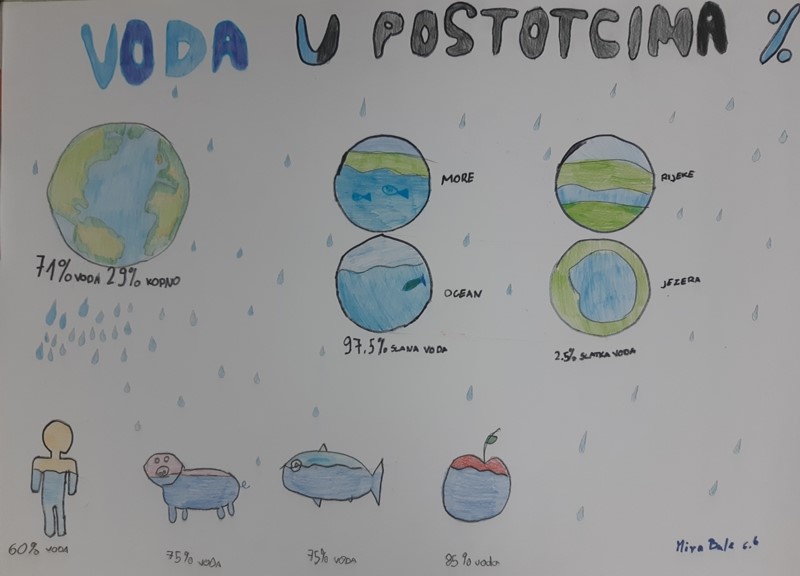 VODA U POSTOTCIMA %
71% VODA 29% KOPNO
MORE
RIJEKE
OCEAN
JEZERA
97.5% SLANA VODA
2.5% SLATKA VODA
60% VODA
75% VODA
75% VODA
85% voda
6.6